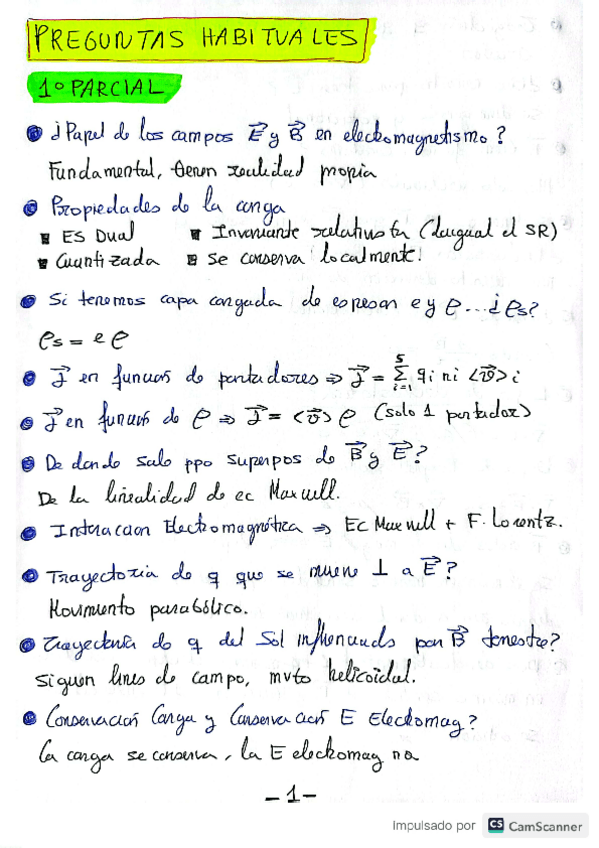 PREGUNTAS HABITUALES
1º PARCIAL
¿Papel de los campos E⃗ y B⃗ en electromagnetismo?
Fundamental, tienen realidad propia
Propiedades de la carga
ES Dual Invariante relativista (da igual el SR)
Cuantizada Se conserva localmente!
Si tenemos capa cargada de espesor e y ρ...¿ρs?
ρs = e ρ
J⃗ en funcion de portadores ⇒ J⃗ = Σ_{i=1}^{s} qi ni <v⃗>i
J⃗ en funcion de ρ ⇒ J⃗ = <v⃗> ρ (solo 1 portador)
De donde sale ppo superpos de B⃗ y E⃗?
De la linealidad de ec Maxwell.
Interaccion Electromagnética ⇒ Ec Maxwell + F. Lorentz.
Trayectoria de q que se mueve ⊥ a E⃗?
Movimiento parabólico.
Trayectoria de q del Sol influenciada por B⃗ terrestre?
Siguen lines de campo, mvto helicoidal.
Conservación Carga y Conservación E Electromag?
La carga se conserva, la E electromag no
-1-
Impulsado por CS CamScanner